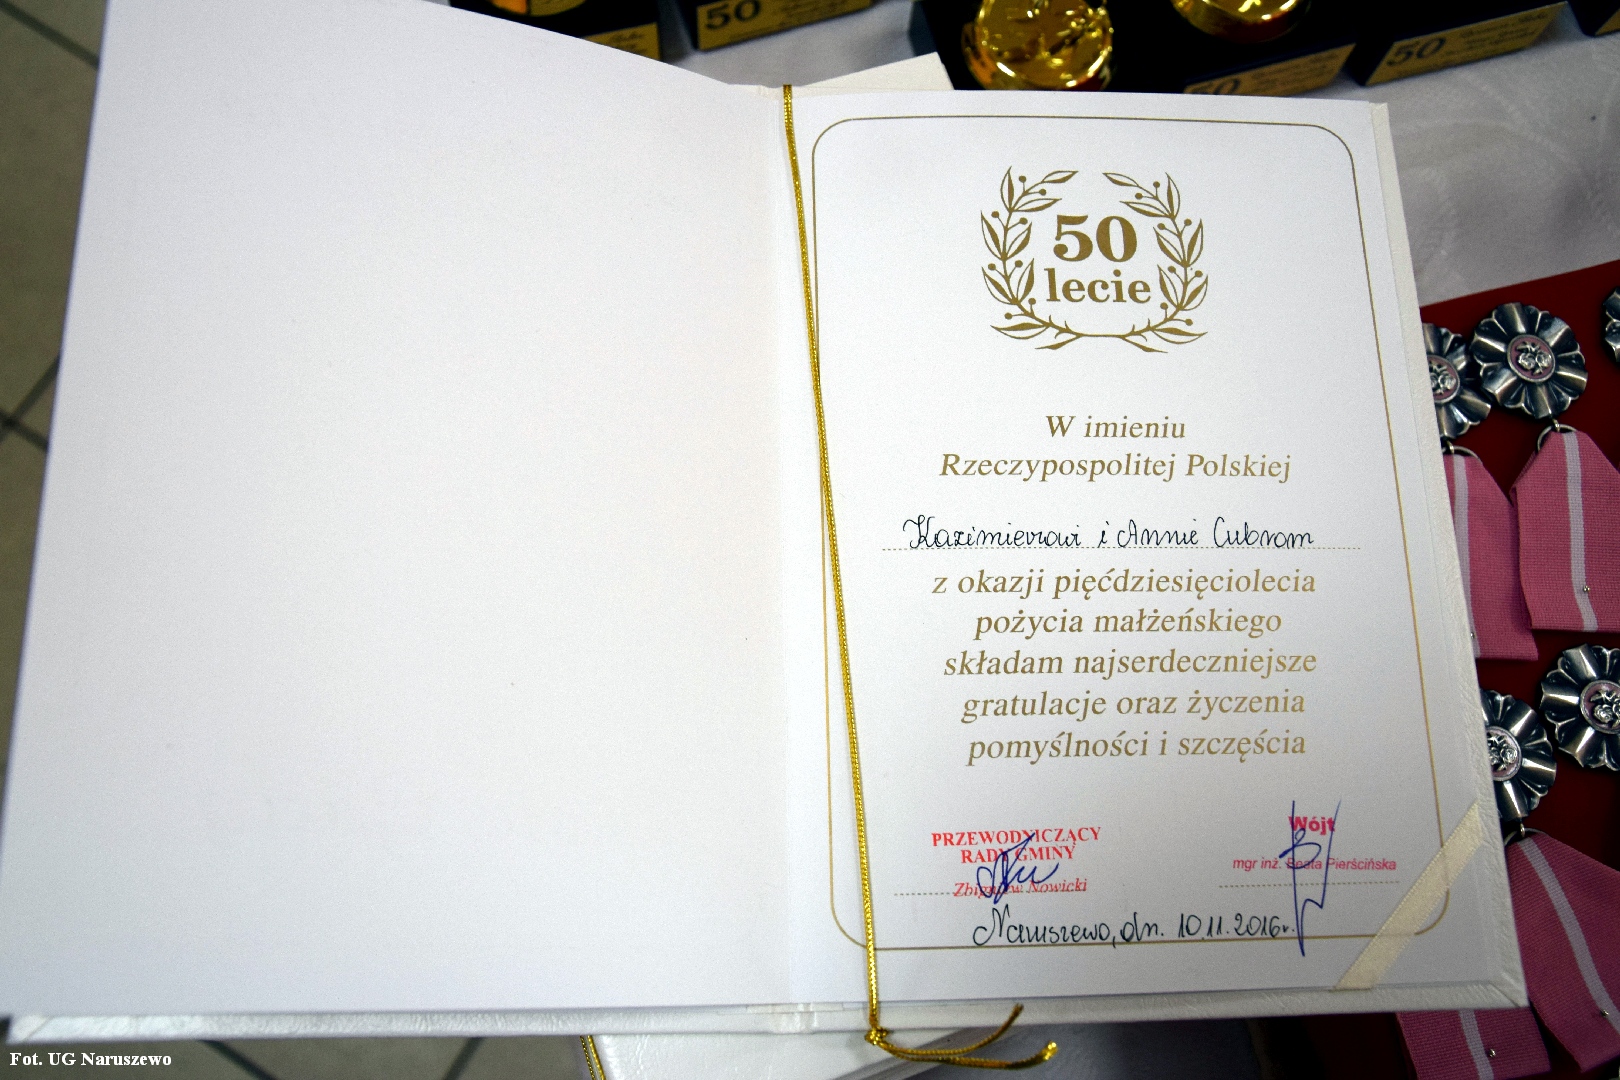 50
50
50
50
lecie
W imieniu
Rzeczypospolitej Polskiej
Kazimierzowi i Annie Cubrom
z okazji pięćdziesięciolecia
pożycia małżeńskiego
składam najserdeczniejsze
gratulacje oraz życzenia
pomyślności i szczęścia
PRZEWODNICZĄCY
RADY GMINY
Zbigniew Nowicki
Wójt
mgr inż. Beata Pierścińska
Naruszewo, dn. 10.11.2016r.
Fot. UG Naruszewo